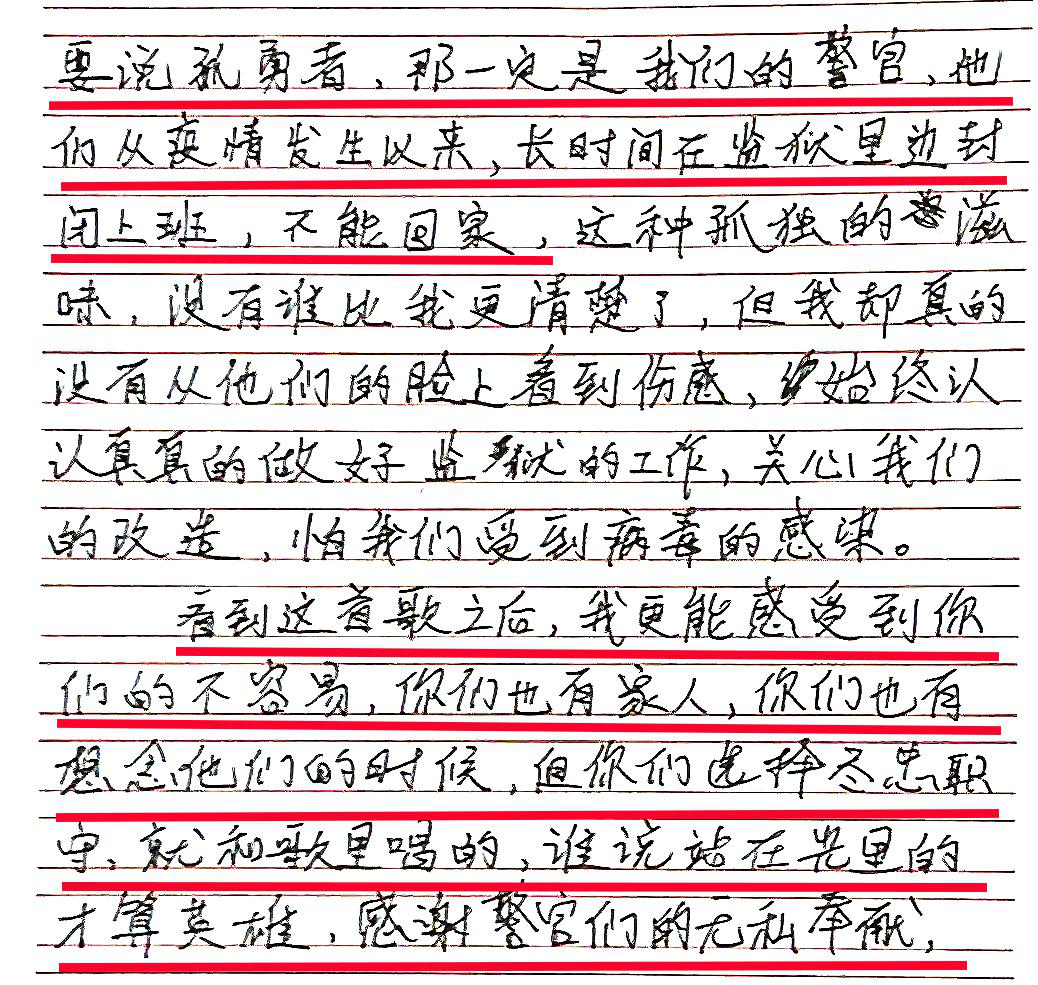 要说孤勇者，那一定是我们的警官，他
们从疫情发生以来，长时间在监狱里边封
闭上班，不能回家，这种孤独的滋
味，没有谁比我更清楚了，但我却真的
没有从他们的脸上看到伤感，始终认
认真真的做好监狱的工作，关心我们
的改造，怕我们受到病毒的感染。
看到这首歌之后，我更能感受到你
们的不容易，你们也有家人，你们也有
想念他们的时候，但你们选择尽忠职
守，就和歌里唱的，谁说站在光里的
才算英雄，感谢警官们的无私奉献，